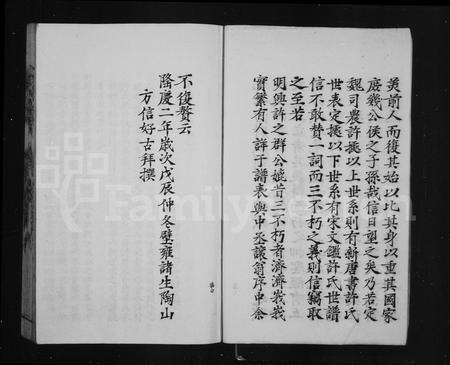 美前人而復其始以比其身以重其國家
庶幾公侯之子孫哉信日望之矣乃若定
魏司農許據以上世系則有新唐書許氏
世表定據以下世系有宋文鑑許氏世譜
信不敢贊一詞而三不朽之義則信竊取
之至若
明興許之群公媲昔三不朽者濟濟峩峩
實繁有人詳于譜表與中丞讓翁序中余
不復贅云
隆慶二年歲次戊辰仲冬壁雍諸生陶山
方信好古拜撰
FamilySearch